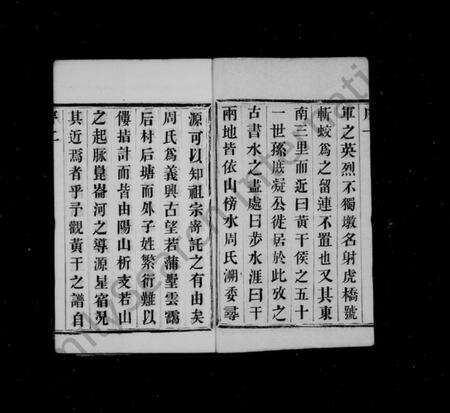 軍之英烈不獨墩名射虎橋號
斬蛟爲之留連不置也又其東
南三里而近曰黃干侯之五十
一世孫底凝公徙居於此攷之
古書水之盡處曰步水涯曰干
兩地皆依山傍水周氏溯委尋
源可以知祖宗寄託之有由矣
周氏爲義興古望若蒲墅雲
后村后塘而外子姓繁衍難以
僂指計而皆由陽山析支若山
之起脉崑崙河之導源星宿況
其近焉者乎予觀黃干之譜自
序二